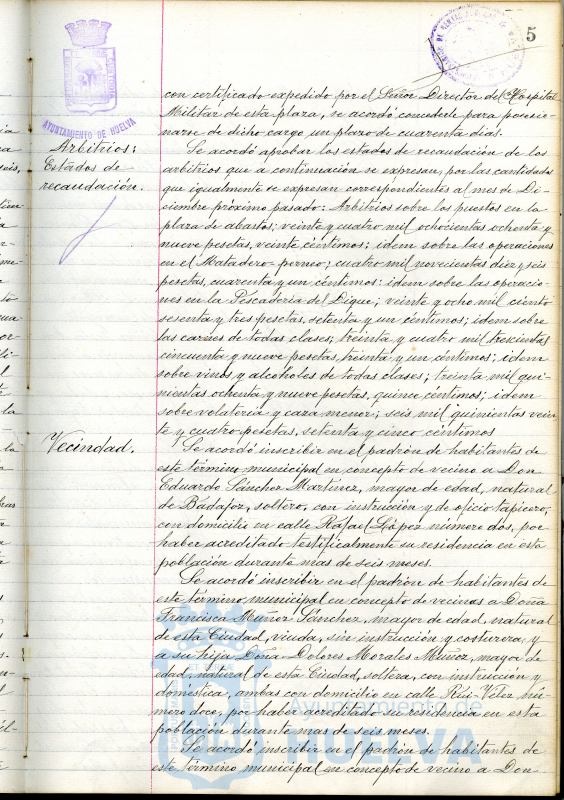 5
AYUNTAMIENTO DE HUELVA
con certificado expedido por el Señor Director del Hospital
Militar de esta plaza, se acordó concederle para posesio-
narse de dicho cargo un plazo de cuarenta dias.
Arbitrios:
Estados de
recaudación.
Se acordó aprobar los estados de recaudación de los
arbitrios que a continuación se expresan, por las cantidades
que igualmente se expresan correspondientes al mes de Di-
ciembre próximo pasado: Arbitrios sobre los puestos en la
plaza de abastos; veinte y cuatro mil ochocientas ochenta y
nueve pesetas, veinte céntimos; idem sobre las operaciones
en el Matadero porcno; cuatro mil novecientas diez y seis
pesetas, cuarenta y un céntimos: idem sobre las operacio-
nes en la Pescaderia del Dique; veinte y ocho mil ciento
sesenta y tres pesetas, setenta y un céntimos; idem sobre
las carnes de todas clases; treinta y cuatro mil trescientas
cincuenta y nueve pesetas, treinta y un céntimos; idem
sobre vinos y alcoholes de todas clases; treinta mil qui-
nientas ochenta y nueve pesetas, quince céntimos; idem
sobre volateria y caza menor; seis mil quinientas vein-
te y cuatro pesetas, setenta y cinco céntimos
Vecindad.
Se acordó inscribir en el padrón de habitantes de
este término municipal en concepto de vecino a Don
Eduardo Sánchez Martinez, mayor de edad, natural
de Badajoz, soltero, con instrucción y de oficio tapicero,
con domicilio en calle Rafael López número dos, por
haber acreditado testificalmente su residencia en esta
población durante mas de seis meses.
Se acordó inscribir en el padrón de habitantes de
este término municipal en concepto de vecinas a Doña
Francisca Muñoz Sánchez, mayor de edad, natural
de esta Ciudad, viuda, sin instrucción y costurera, y
a su hija Doña Dolores Morales Muñoz, mayor de
edad, natural de esta Ciudad, soltera, con instrucción y
doméstica, ambas con domicilio en calle Ruiz Velez nú-
mero doce, por haber acreditado su residencia en esta
población durante mas de seis meses.
Se acordó inscribir en el padrón de habitantes de
este término municipal en concepto de vecino a Don
Ayuntamiento de
HUELVA